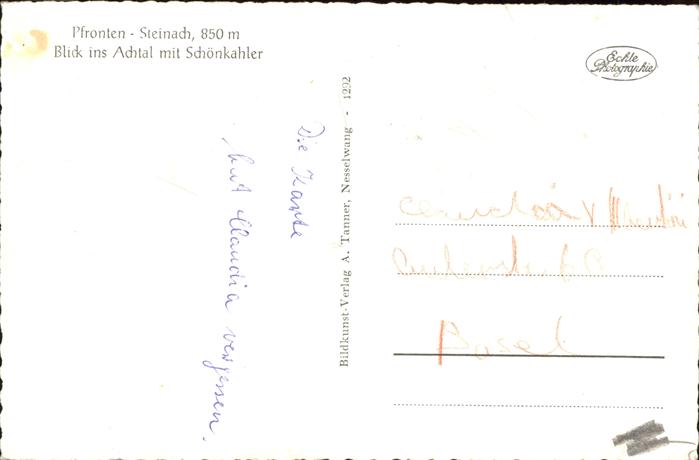 Pfronten - Steinach, 850 m
Blick ins Achtal mit Schönkahler
Echte
Photographie
Die Karte
hat Claudia vergessen.
Bildkunst-Verlag A. Tanner, Nesselwang - 1292
Basel